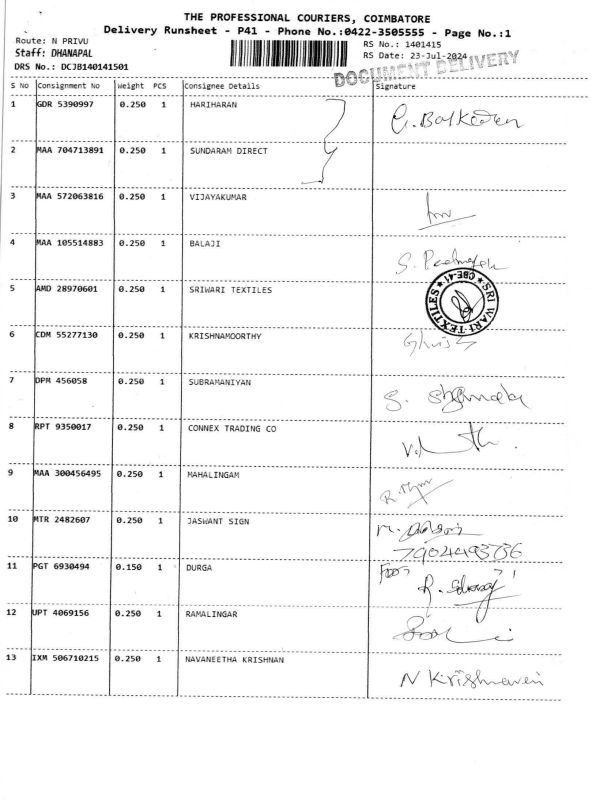 THE PROFESSIONAL COURIERS, COIMBATORE
Delivery Runsheet - P41 - Phone No.:0422-3505555 - Page No.:1
Route: N PRIVU
RS No.: 1401415
Staff: DHANAPAL
RS Date: 23-Jul-2024
DRS No.: DCJB140141501
DOCUMENT DELIVERY
S No Consignment No Weight PCS Consignee Details Signature
1 GDR 5390997 0.250 1 HARIHARAN
2 MAA 704713891 0.250 1 SUNDARAM DIRECT
3 MAA 572063816 0.250 1 VIJAYAKUMAR
4 MAA 105514883 0.250 1 BALAJI
5 AMD 28970601 0.250 1 SRIWARI TEXTILES
SRI WARI TEXTILES * CBE-41 *
6 CDM 55277130 0.250 1 KRISHNAMOORTHY
7 DPM 456058 0.250 1 SUBRAMANIYAN
8 RPT 9350017 0.250 1 CONNEX TRADING CO
9 MAA 300456495 0.250 1 MAHALINGAM
10 MTR 2482607 0.250 1 JASWANT SIGN
11 PGT 6930494 0.150 1 DURGA
12 UPT 4069156 0.250 1 RAMALINGAR
13 IXM 506710215 0.250 1 NAVANEETHA KRISHNAN